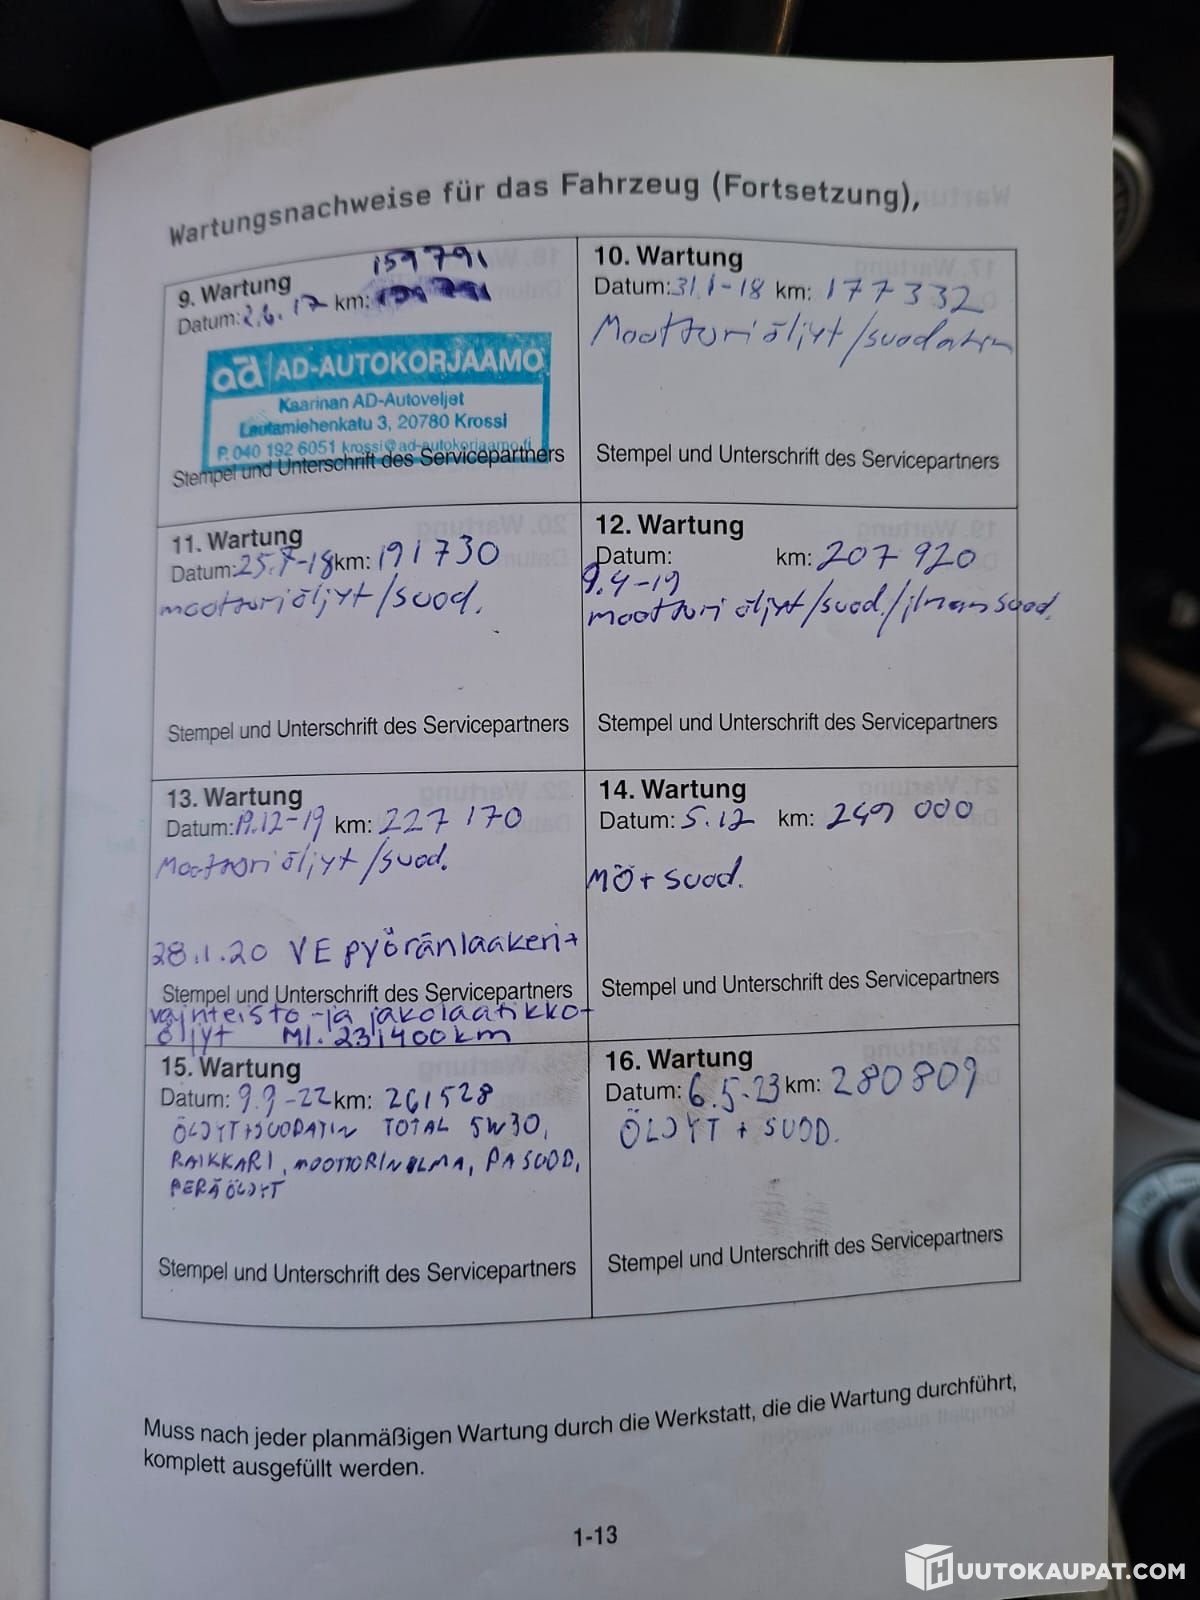 Wartungsnachweise für das Fahrzeug (Fortsetzung),
9. Wartung
159 791
Datum: 2.6.17 km:
ad AD-AUTOKORJAAMO
Kaarinan AD-Autoveljet
Lautamiehenkatu 3, 20780 Krossi
P. 040 192 6051 krossi@ad-autokorjaamo.fi
Stempel und Unterschrift des Servicepartners
10. Wartung
Datum: 31.1-18 km: 177 332
Moottoriöljyt/suodatin
Stempel und Unterschrift des Servicepartners
11. Wartung
Datum: 25.7-18 km: 191730
moottoriöljyt/suod.
Stempel und Unterschrift des Servicepartners
12. Wartung
Datum: km: 207 920
9.4-19
moottori öljyt/suod./ilman suod.
Stempel und Unterschrift des Servicepartners
13. Wartung
Datum: 19.12-19 km: 227 170
Moottoriöljyt/suod.
28.1.20 VE pyöränlaakeri+
Stempel und Unterschrift des Servicepartners
vainteisto-ja jakolaatikko-
öljyt Ml. 231400km
14. Wartung
Datum: 5.12 km: 249 000
MÖ+ suod.
Stempel und Unterschrift des Servicepartners
15. Wartung
Datum: 9.9-22 km: 261528
ÖLJYT+SUODATIN TOTAL 5W30,
RAIKKARI, MOOTTORINILMA, PA SUOD,
PERÄÖLJYT
Stempel und Unterschrift des Servicepartners
16. Wartung
Datum: 6.5.23 km: 280809
ÖLJYT + SUOD.
Stempel und Unterschrift des Servicepartners
Muss nach jeder planmäßigen Wartung durch die Werkstatt, die die Wartung durchführt,
komplett ausgefüllt werden.
1-13
HUUTOKAUPAT.COM